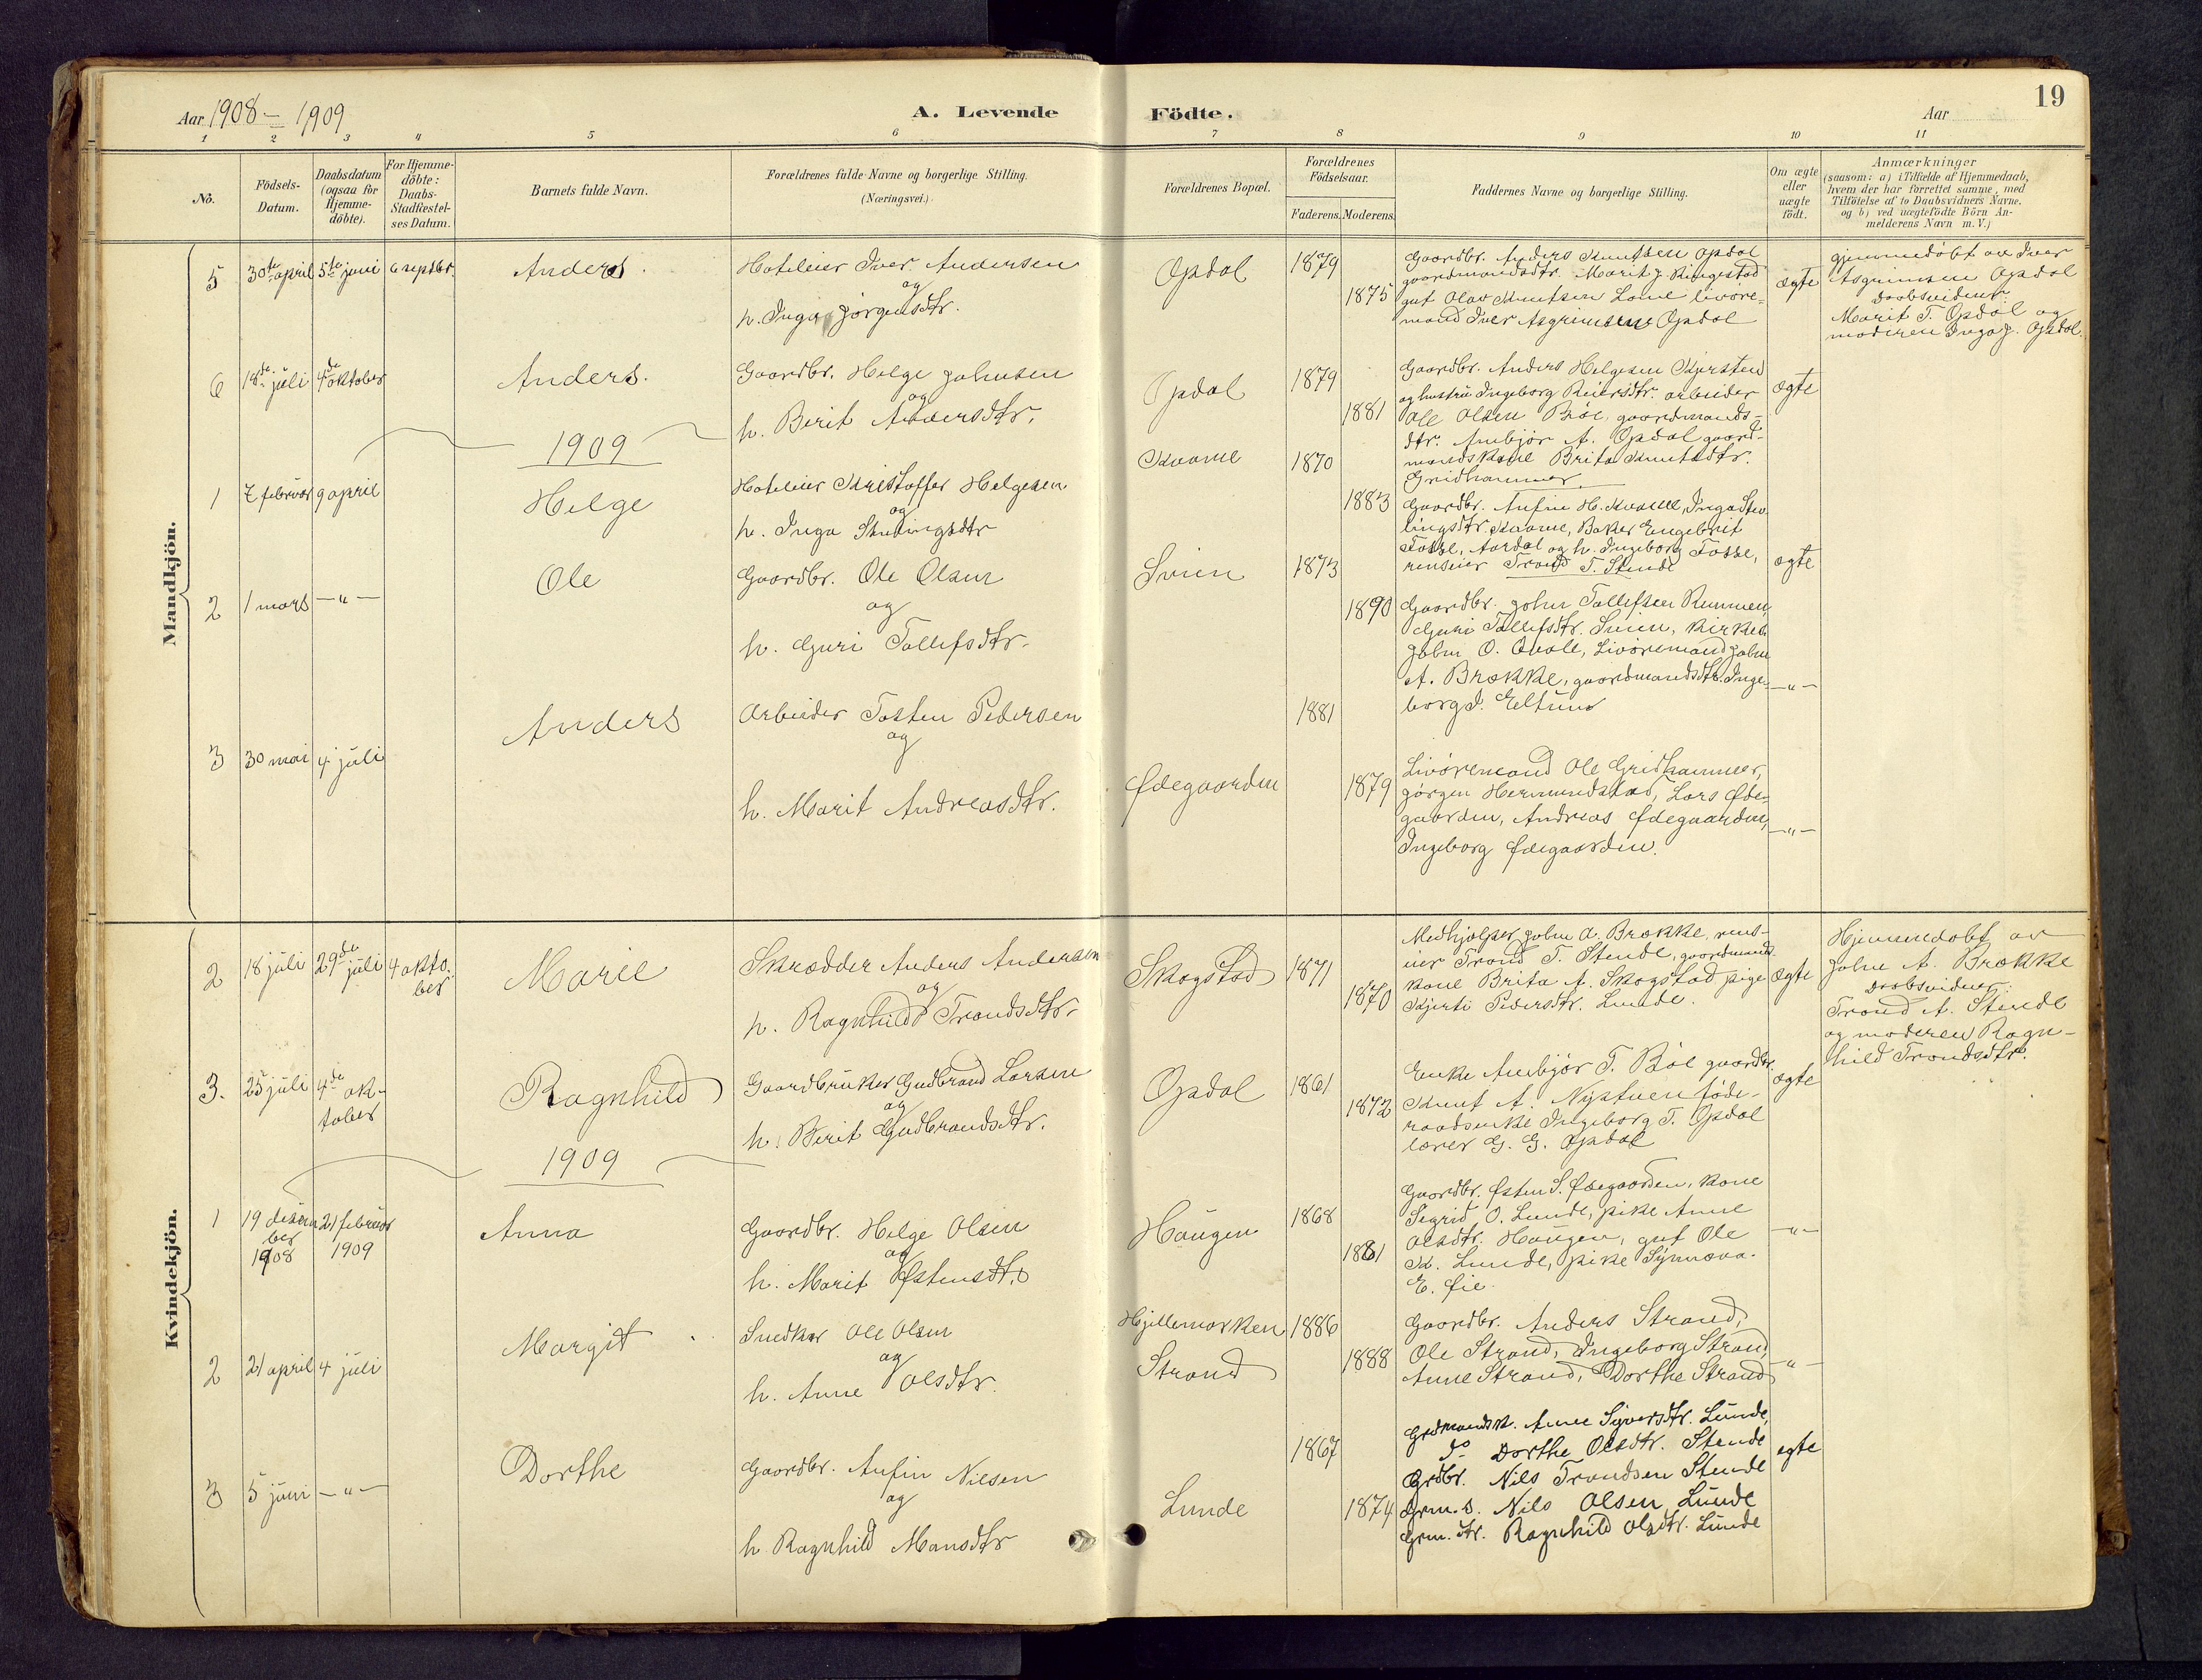 Aar 1908 – 1909
A. Levende Födte.
Aar
19
1 2 3 4 5 6 7 8 9 10 11
No.
Födsels-Datum.
Daabsdatum (ogsaa for Hjemme-döbte).
For Hjemme-döbte: Daabs-Stadfæstel-ses Datum.
Barnets fulde Navn.
Forældrenes fulde Navne og borgerlige Stilling. (Næringsvei.)
Forældrenes Bopæl.
Forældrenes Födselsaar.
Faderens. Moderens.
Faddernes Navne og borgerlige Stilling.
Om ægte eller uægte födt.
Anmærkninger
(saasom: a) i Tilfælde af Hjemmedaab,
hvem der har forrettet samme, med
Tilföielse af to Daabsvidners Navne.
og b) ved uægtefödte Börn An-
melderens Navn m. V.)
Mandkjön.
5 30te april 5te juni 6 septbr. Anders.
Hoteleier Iver Andersen
og
h. Inga Jörgensdtr.
Opdal 1879 1875
Gaardbr. Anders Knutsen Opdal
gaardmandsdtr. Marit J. Ringestad
gut Olav Knutsen Lome livöre-
mand Iver Asgrimsen Opdal
ægte
Hjemmedöbt av Iver
Asgrimsen Opdal
Daabsvidner:
Marit T. Opdal og
moderen Inga J. Opdal.
6 18de juli 4de oktober Anders.
Gaardbr. Helge Johnsen
og
h. Berit Andersdtr.
Opdal 1879 1881
Gaardbr. Anders Helgesen Kjerstad
og hustru Ingeborg Reiersdtr. arbeider
Ole Olsen Böe, gaardmands-
dtr. Anbjör A. Opdal gaard-
mandskone Brita Knutsdtr.
Gridhammer
ægte
1909
1 7 februar 9 april Helge
Hoteleier Kristoffer Helgesen
og
h. Inga Stulingsdtr
Kvame 1870 1883
Gaardbr. Anfin H. Kvame, Inga Stu-
lingsdtr. Kvame, Baker Engebrit
Fosse, Aardal og h. Ingeborg Fosse,
renseier Trond T. Stende
ægte
2 1 mars – " – Ole
Gaardbr. Ole Olsen
og
h. Guri Tollefsdtr.
Svien 1873 1890
Gaardbr. John Tollefsen Rummen
Guri Tollefsdtr. Svien, kirkes.
John O. Qvale, Livöremand John
A. Brække, gaardmandsdtr. Inge-
borg J. Eltun
– " –
3 30 mai 4 juli Anders
Arbeider Tosten Pedersen
og
h. Marit Andreasdtr.
Ødegaarden 1881 1879
Livöremand Ole Gridhammer,
Jörgen Hermundstad, Lars Øde-
gaarden, Andreas Ødegaarden,
Ingeborg Ødegaarden.
– " –
Kvindekjön.
2 18 juli 29de juli 4 okto-
ber
Marie
Skrædder Anders Andersen
og
h. Ragnhild Trondsdtr.
Skogstad 1871 1870
Medhjelper John A. Brække, rens-
eier Trond T. Stende, gaardmands
kone Brita A. Skogstad pige
Kjerti Pedersdtr. Lunde.
ægte
Hjemmedöbt av
John A. Brække
Daabsvidner:
Trond A. Stende
og moderen Ragn-
hild Trondsdtr.
3. 25 juli 4de ok-
tober
Ragnhild
Gaardbruker Gudbrand Larsen
og
h. Berit Gudbrandsdtr.
Opdal 1861 1872
Enke Anbjör T. Böe gaardbr.
Knut A. Nystuen föde-
raadsenke Ingeborg T. Opdal
lærer G. G. Opdal
ægte
1909
1 19 desem
ber
1908
21 februar
1909
Anna
Gaardbr. Helge Olsen
og
h. Marit Østensdtr.
Haugen 1868 1881
Gaardbr. Østen S. Ødegaarden, kone
Sigrid O. Lunde, pike Anne
Olsdtr. Haugen, gut Ole
K. Lunde, pike Synnøva
E. Øie
– " –
2 21 april 4 juli Margit
Snedker Ole Olsen
og
h. Anne Olsdtr.
Hjellemarken
Strand
1886 1888
Gaardbr. Anders Strand,
Ole Strand, Ingeborg Strand,
Anne Strand, Dorthe Strand
– " –
3 5 juni – " – Dorthe
Gaardbr. Anfin Nilsen
og
h Ragnhild Monsdtr
Lunde 1867 1874
Grdmandsk. Anne Syversdtr. Lunde,
do Dorthe Olsdtr. Stende
Grdbr. Nils Trondsen Stende
Grm. s. Nils Olsen Lunde
Grm. dtr. Ragnhild Olsdtr. Lunde
egte